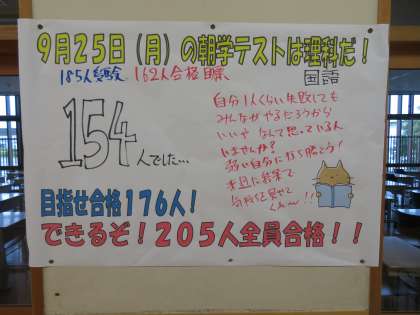 9月25日(月)の朝学テストは理科だ!
185人受験 162人合格目標
国語
154人でした…
自分1人くらい失敗しても
みんながやるだろうから
いいやなんて思っている人
いませんか?
弱い自分に打ち勝とう!
本辺に結果で
気持ちを見せて
くれ〜!!
目指せ合格176人!
できるぞ!205人全員合格!!